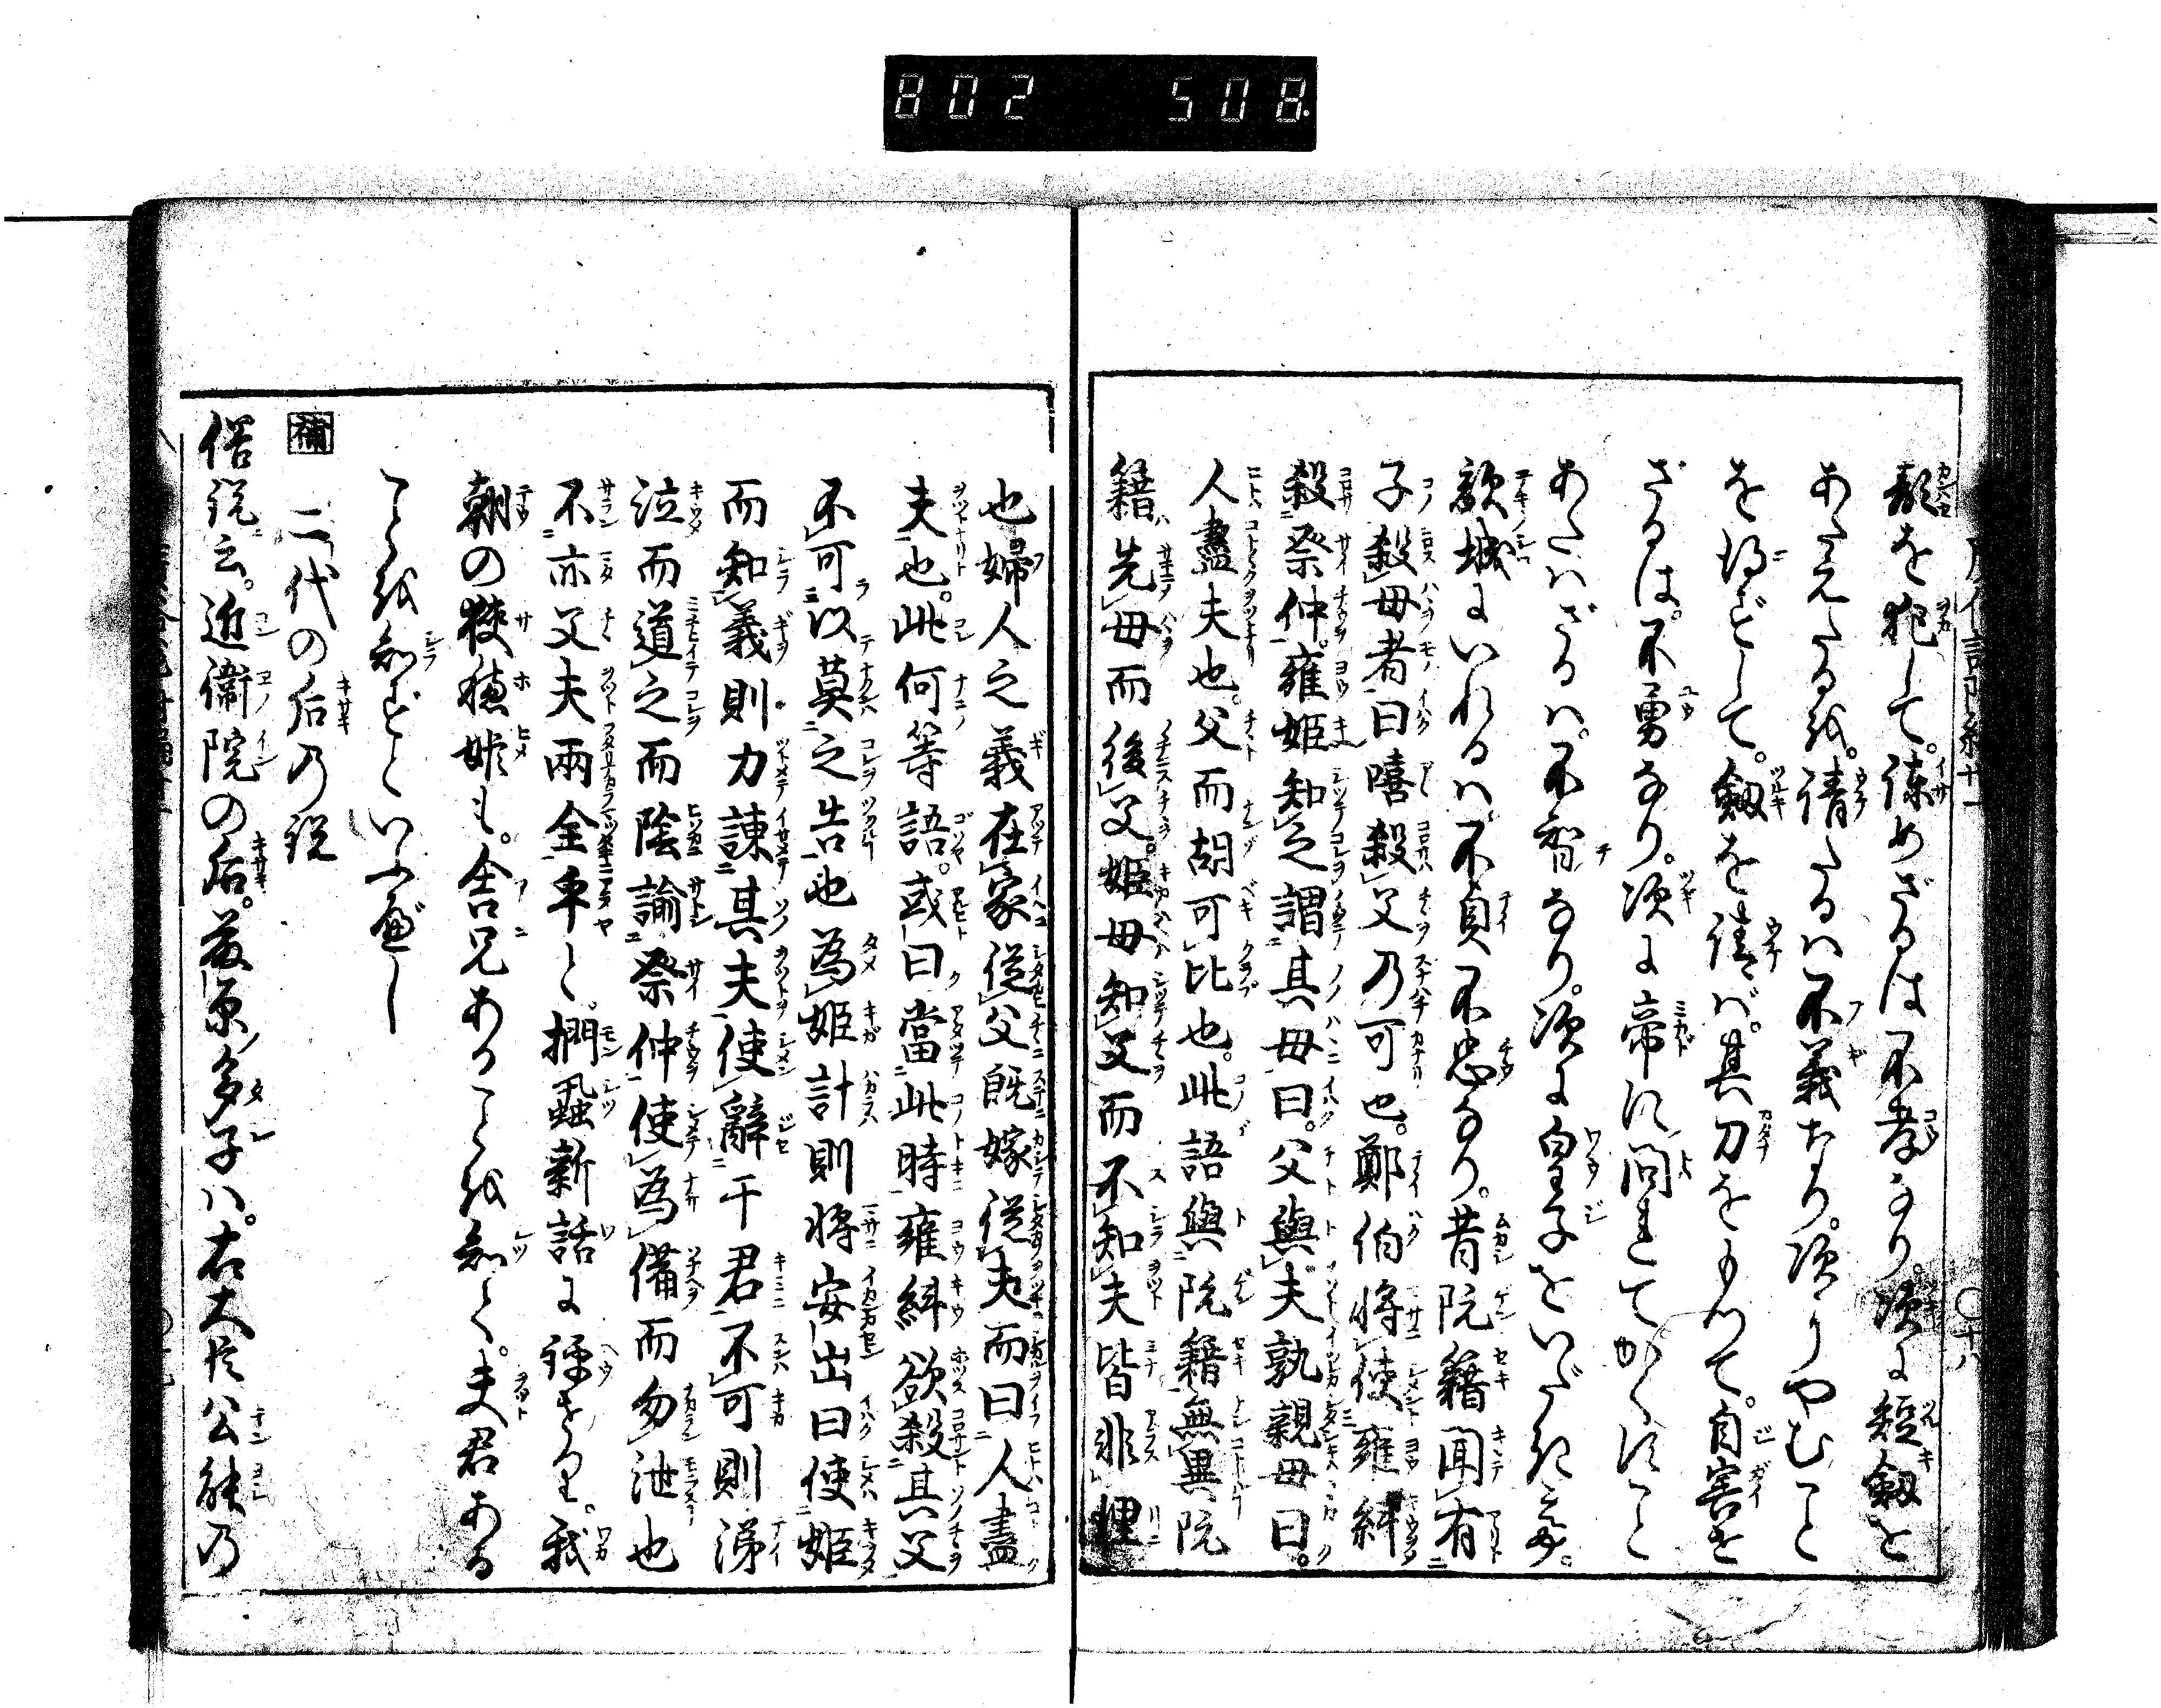 802 508
顔を犯して。諫めざるは不孝なり。次に短劔を
あたえたるを。請たるハ不義なり。次にやむこと
を得ずして。劔を請ば。其刀をもつて。自害せ
ざるは。不勇なり。次に帝に問れてかくすこと
あたハざるハ。不智なり。次に皇子をいだき
敵城にいれるハ。不貞不忠なり。昔阮籍聞有
子殺母者曰嘻殺父乃可也。鄭伯將使雍糾
殺祭仲。雍姫知之謂其母曰。父與夫孰親母曰。
人盡夫也。父而胡可比也。此語與阮籍無異阮
籍先母而後父。姫母知父而不知夫皆非理
也婦人之義在家從父既嫁從夫而曰人盡
夫也。此何等語。或曰當此時雍糾欲殺其父
不可以莫之告也為姫計則將安出曰使姫
而知義則力諫其夫使辭于君不可則涕
泣而道之而陰諭祭仲使為備而勿泄也
不亦父夫兩全乎と。捫蝨新話に評せり。我
朝の狹穂姫も。舎兄あることを知て。夫君ある
ことを知ずといふべし
補 二代の后の説
俗説云。近衞院の后。藤原多子ハ。右大臣公能の